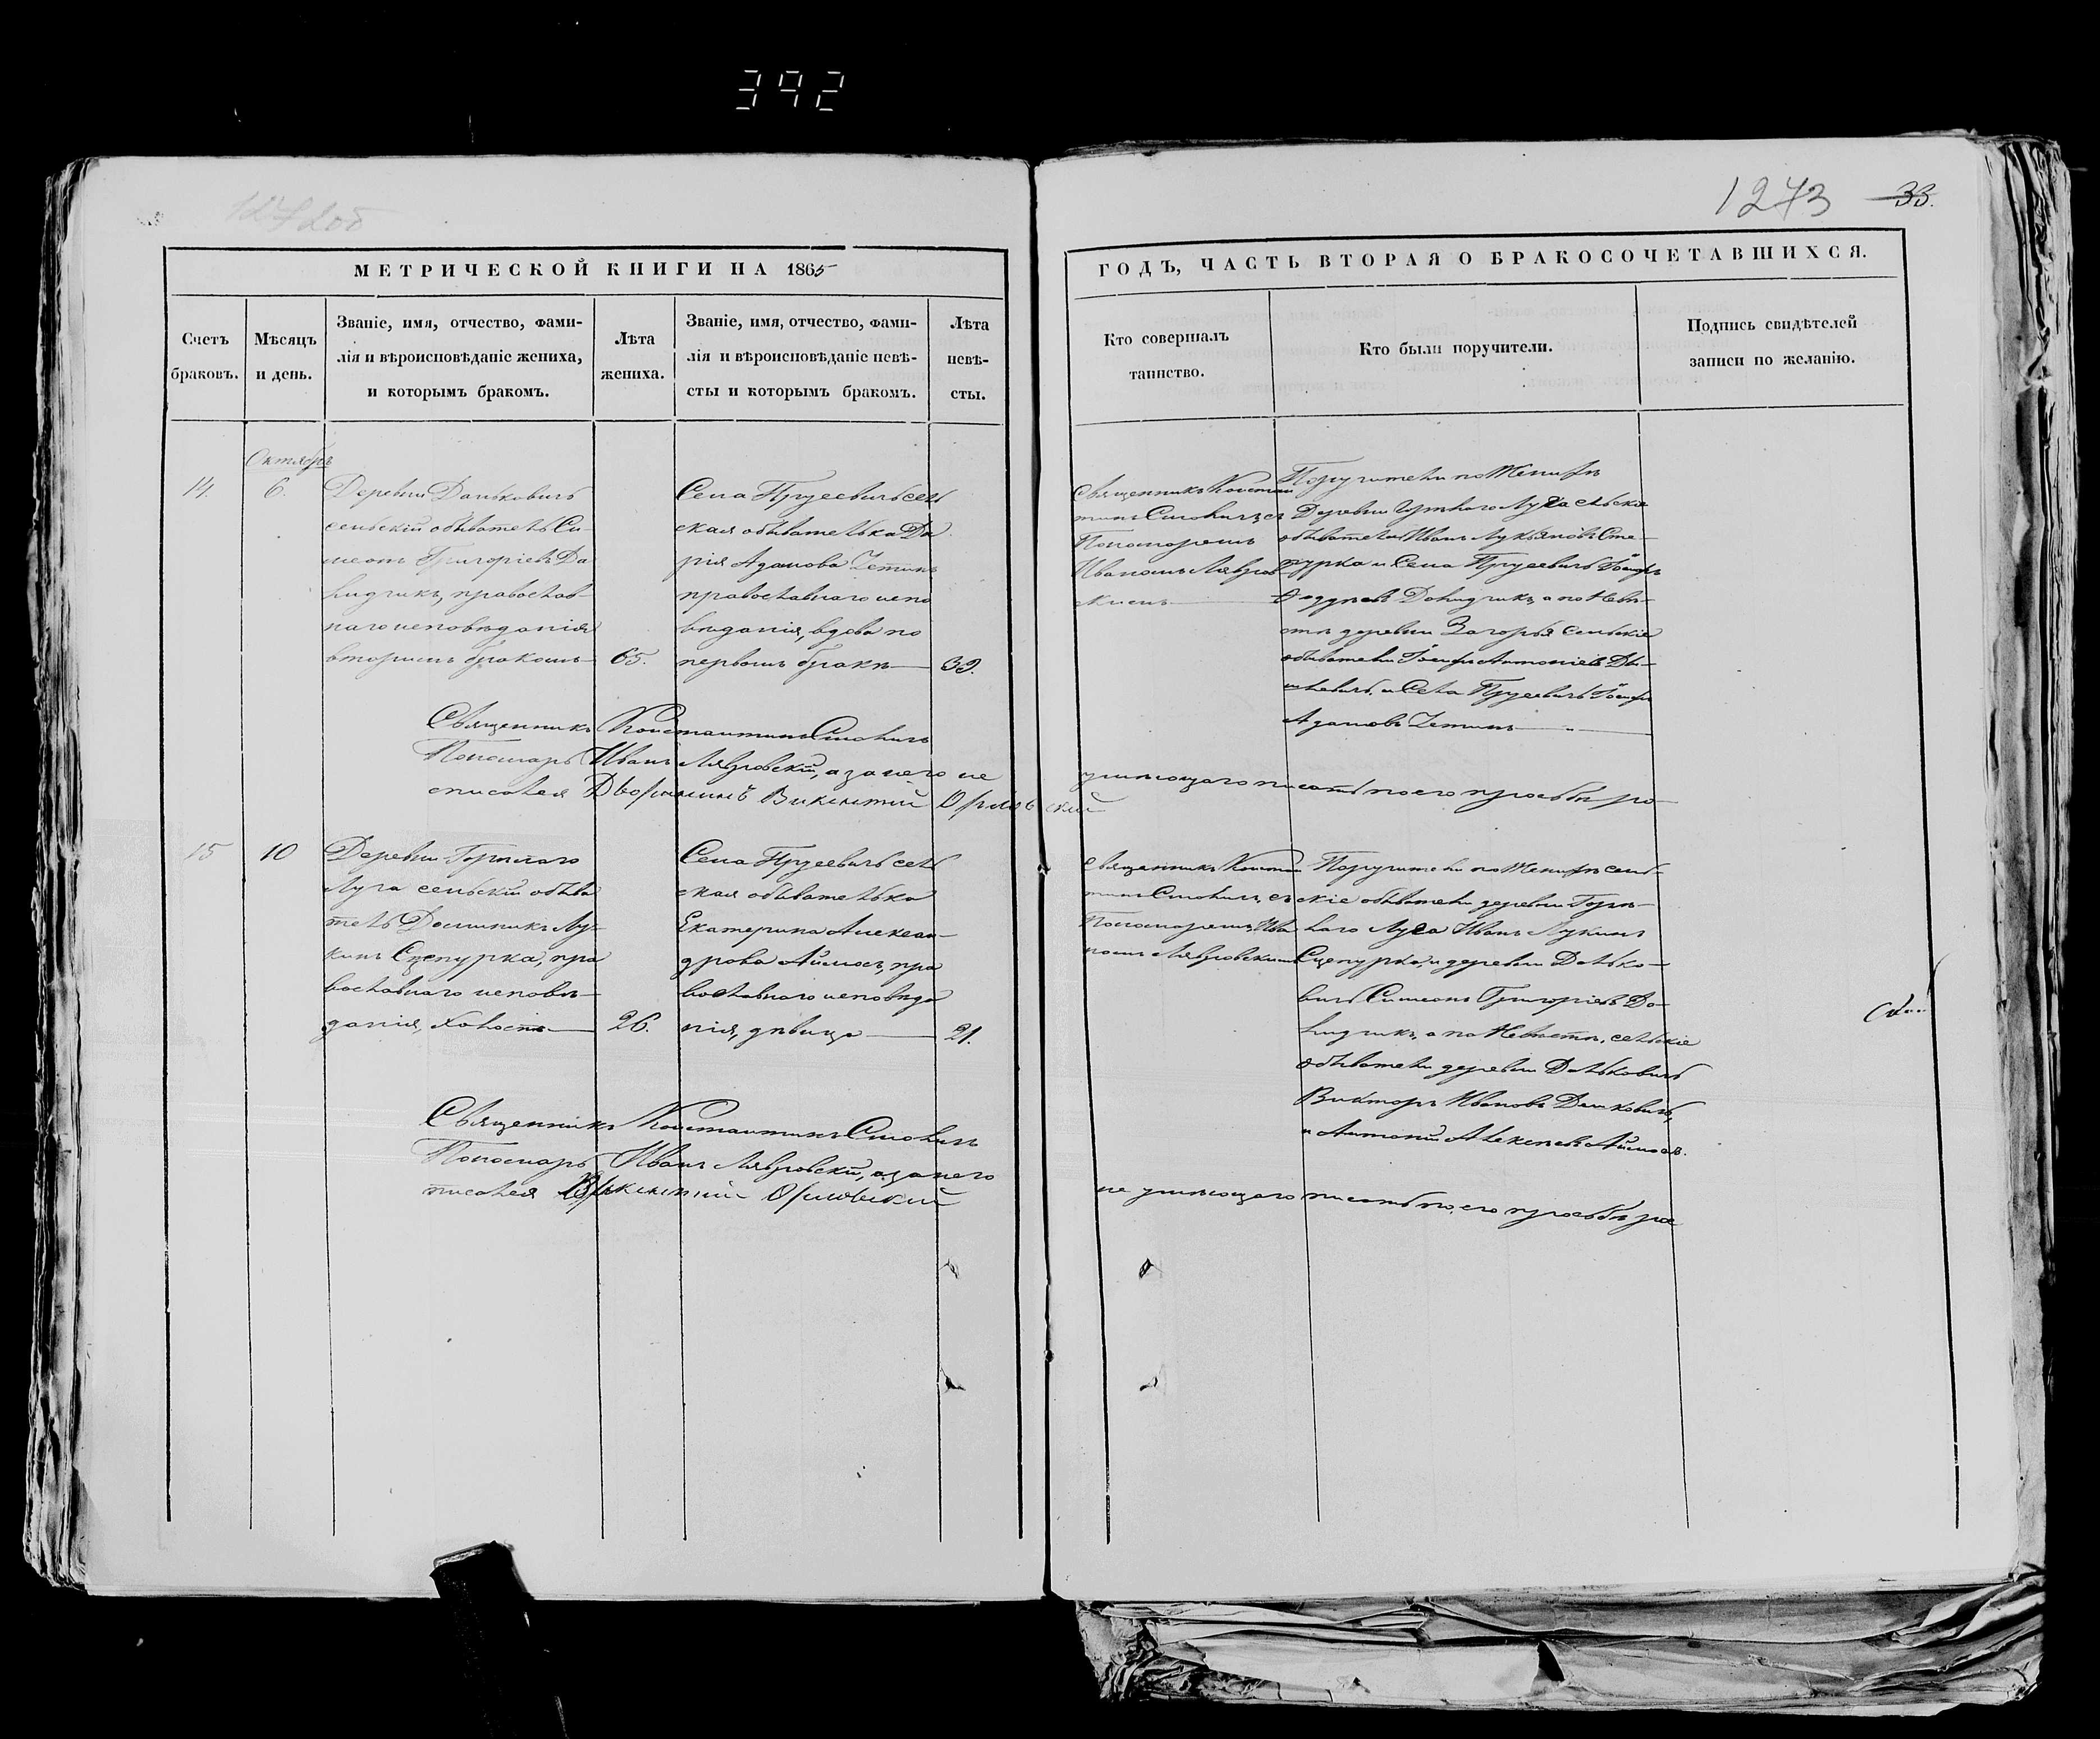 392
1272об
1273 33.
МЕТРИЧЕСКОЙ КНИГИ НА 1865
ГОДЪ, ЧАСТЬ ВТОРАЯ О БРАКОСОЧЕТАВШИХСЯ.
Счетъ браковъ.
Мѣсяцъ и день.
Званіе, имя, отчество, фами-
лія и вѣроисповѣданіе жениха,
и которымъ бракомъ.
Лѣта
жениха.
Званіе, имя, отчество, фами-
лія и вѣроисповѣданіе невѣ-
сты и которымъ бракомъ.
Лѣта
невѣ-
сты.
Кто совершалъ
таинство.
Кто были поручители.
Подпись свидѣтелей
записи по желанію.
Октябрь
14. 6.
Деревни Даньковичъ
сельскій обыватель Си-
меонъ Григоріевъ Да
лидчикъ, православ-
наго исповѣданія
вторымъ бракомъ 65.
Села Прусевичъ сель
ская обывателька Да
рія Адамова
православнаго испо
вѣданія, вдова по
первомъ бракѣ 39.
Священникъ Констан
тинъ Смоличъ, съ
Пономаремъ
Иваномъ Лявров
скимъ
Поручители по Женихѣ
Деревни Горнаго Луга сельскіе
обыватели Иванъ Лукьяновъ Сце-
пурка и Села Прусевичъ Іосифъ
а по Невѣ-
стѣ деревни Загорья сельскіе
обыватели Іосифъ Антоніевъ
и Села Прусевичъ Іосифъ
Адамовъ
Священникъ Константинъ Смоличъ
Пономарь Иванъ Лявровскій, а за него не
умѣющаго писать по его прозьбѣ ро-
списался Дворянинъ Викентій Орловскій
15 10
Деревни Горнаго
Луга сельскій обыва
тель Доминикъ Лу-
кинъ Сцепурка, пра
вославнаго исповѣ-
данія, холостъ 26.
Села Прусевичъ сель
ская обывателька
Екатерина Алексан-
дрова Аймосъ, пра
вославнаго исповѣда
нія, дѣвица 21.
Священникъ Констан
тинъ Смоличъ, съ
Пономаремъ Ива
номъ Лявровскимъ
Поручители по Женихѣ сель-
скіе обыватели деревни Горн-
наго Луга Иванъ Лукинъ
Сцепурка, и деревни Далько-
вичъ Симеонъ Григоріевъ Да-
лидчикъ, а по Невѣстѣ, сельскіе
обыватели деревни Дальковичъ
Викторъ Ивановъ
и Антоній Алексѣевъ Аймосъ.
Священникъ Константинъ Смоличъ
Пономарь Иванъ Лявровскій, а за него
не умѣющаго писать по его прозьбѣ рос
писался Викентій Орловскій